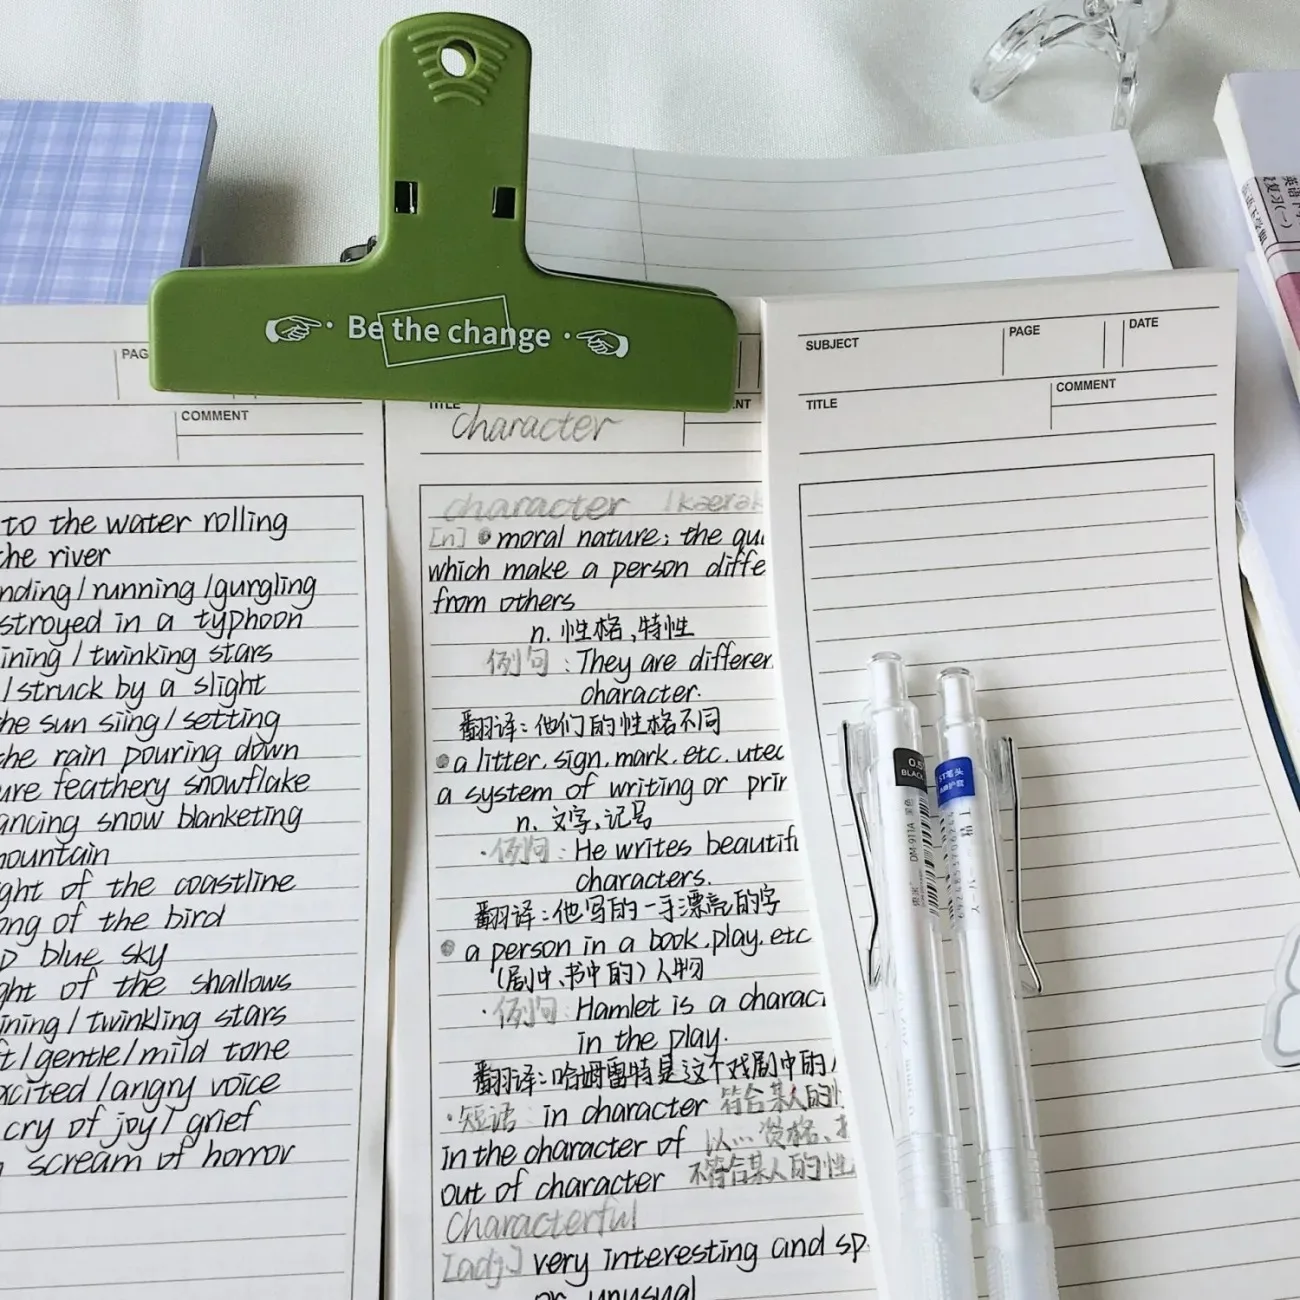 Be the change
COMMENT
to the water rolling
the river
/running/gurgling
in a typhoon
/twinking stars
/struck by a slight
the sun siing/setting
the rain pouring down
feathery snowflake
snow blanketing
of the coastline
of the bird
blue sky
of the shallows
/twinkling stars
/gentle/mild tone
/angry voice
cry of joy/grief
scream of horror
TITLE
character
character
[n] moral nature; the
which make a person
from others
n. 性格,特性
例句:They are
character.
翻译:他们的性格不同
a litter. sign. mark. etc.
a system of writing or
n. 文字,记号
·例句:He writes
characters.
翻译:他写的一手漂亮的字
a person in a book. play. etc
(剧中、书中的)人物
·例句:Hamlet is a
in the play.
翻译:哈姆雷特是这个戏剧中的
·短语 in character 符合某人的
in the character of 以… 资格、
out of character 不符合某人的性
Characterful
[adj.] very interesting and
or unusual
SUBJECT
PAGE
DATE
TITLE
COMMENT
0.5
BLACK
DM-911A
ST笔头